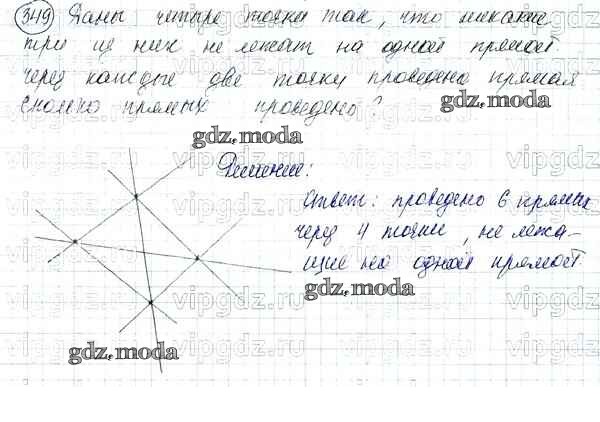 349 Даны четыре точки так, что никакие
три из них не лежат на одной прямой
через каждые две точки проведена прямая
сколько прямых проведено?
gdz.moda
Решение:
Ответ: проведено 6 прямых
через 4 точки, не лежа-
щие на одной прямой
gdz.moda
gdz.moda
vipgdz.ru